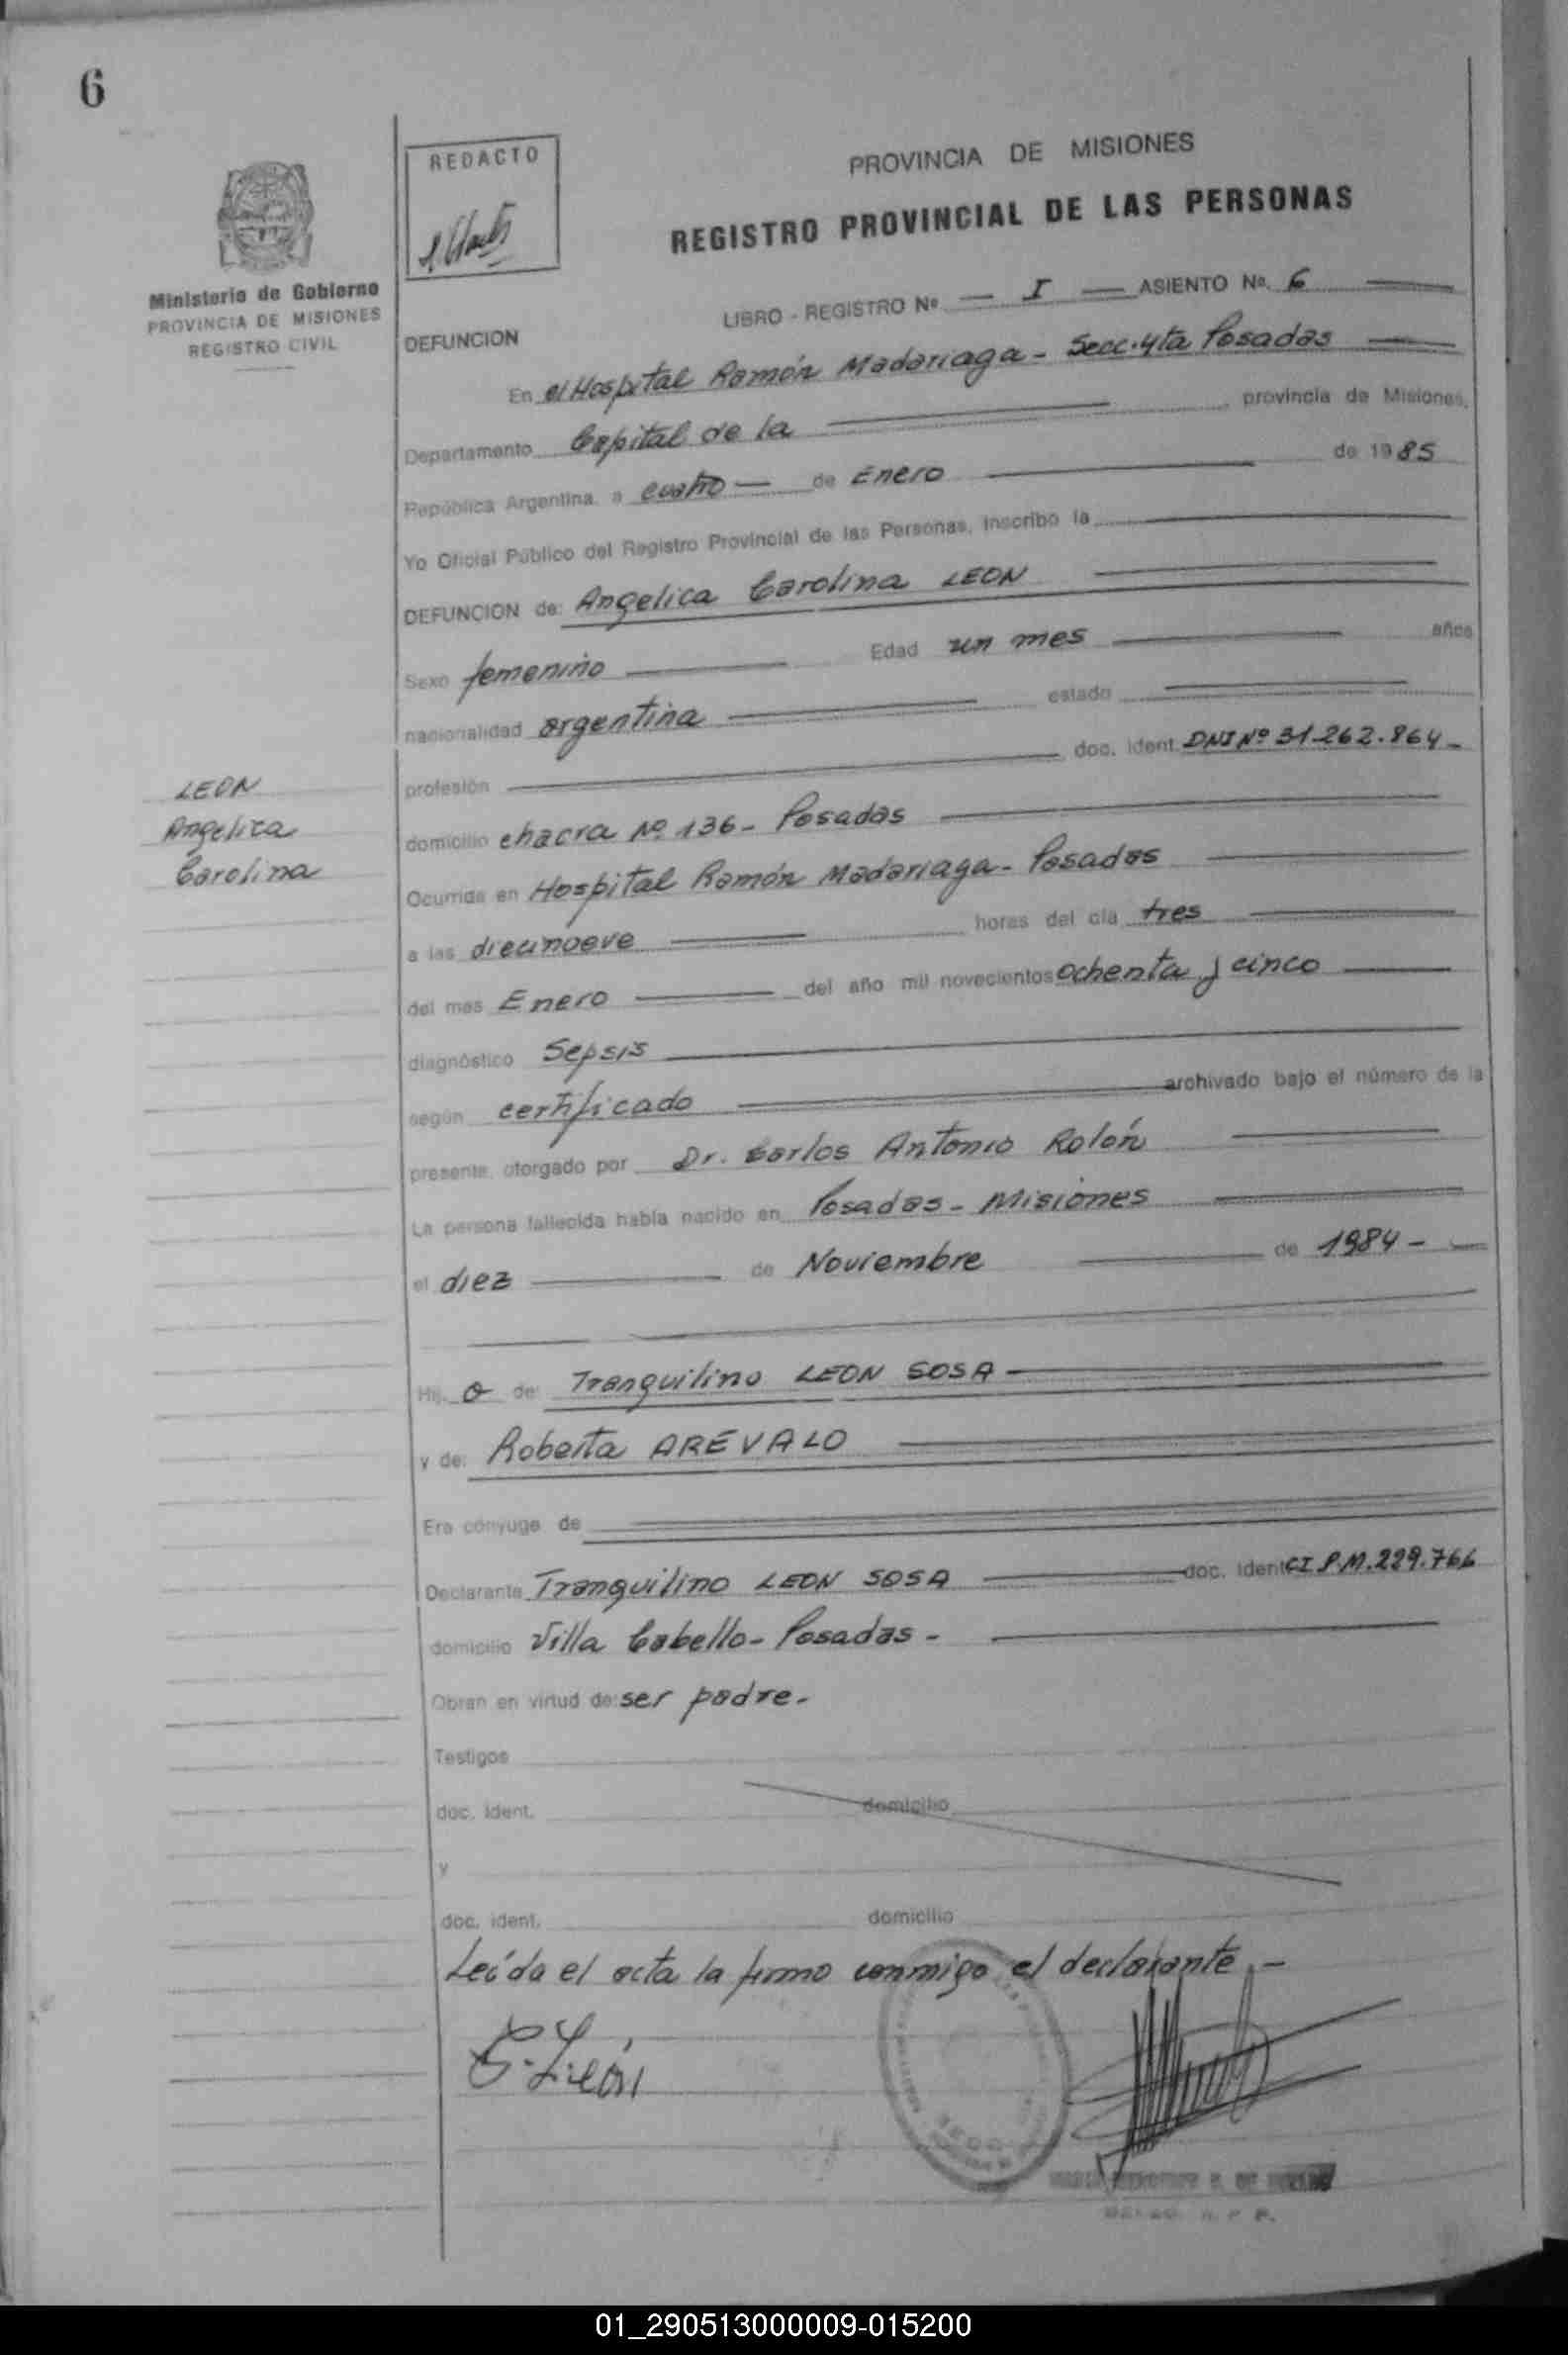 6
REDACTO
PROVINCIA DE MISIONES
REGISTRO PROVINCIAL DE LAS PERSONAS
Ministerio de Gobierno
PROVINCIA DE MISIONES
REGISTRO CIVIL
LIBRO - REGISTRO Nº I ASIENTO Nº 6
DEFUNCION
En el Hospital Ramón Madariaga - Secc. 4ta Posadas
Departamento Capital de la provincia de Misiones,
República Argentina, a cuatro de Enero de 1985
Yo Oficial Público del Registro Provincial de las Personas, inscribo la
DEFUNCION de: Angelica Carolina LEON
Sexo femenino Edad un mes años
nacionalidad argentina estado
profesión doc. ident. DNI Nº 31.262.864-
LEON
Angelica
Carolina
domicilio chacra Nº 136 - Posadas
Ocurrida en Hospital Ramón Madariaga - Posadas
a las diecinueve horas del día tres
del mes Enero del año mil novecientos ochenta y cinco
diagnóstico Sepsis
según certificado archivado bajo el número de la
presente, otorgado por Dr. Carlos Antonio Rolón
La persona fallecida había nacido en Posadas - Misiones
el diez de Noviembre de 1984 -
Hij a de: Tranquilino LEON SOSA
y de: Roberta ARÉVALO
Era cónyuge de
Declarante Tranquilino LEON SOSA doc. ident. CI P.M. 229.766
domicilio Villa Cabello - Posadas -
Obran en virtud de: ser padre.
Testigos
doc. ident. domicilio
y
doc. ident. domicilio
Leída el acta la firmo conmigo el declarante. -
León
01_290513000009-015200